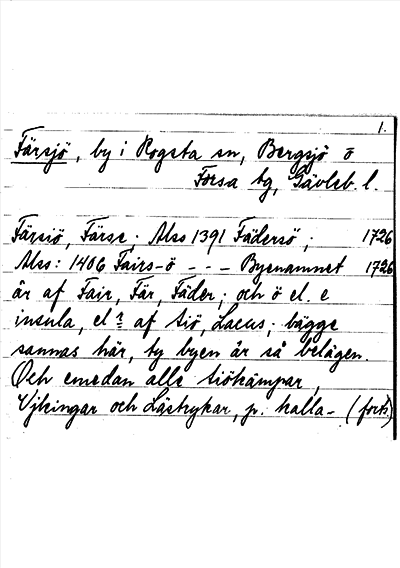 1.
Färsjö, by i Rogsta sn, Bergsjö o
Forsa tg, Gävleb. l.
Färsiö, Färse; Mss 1391 Fädersö; 1726
Mss: 1406 Fairs-ö - - - Byenamnet 1726
är af Fair, Fär, Fäder; och ö el. e
insula, el r af siö, Lacus; bägge
sannas här, ty byen är så belägen.
Och emedan alle siökämpar,
Vjkingar och Lästrykar, p. kalla- (forts)